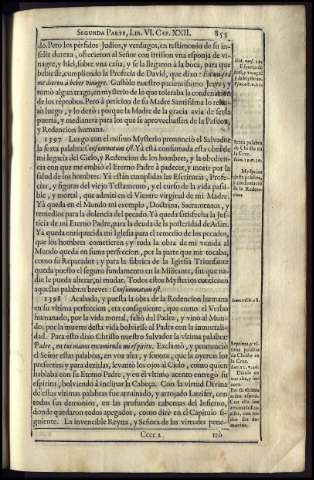 SEGUNDA PARTE, LIB. VI. CAP. XXII. 855
do. Pero los pérfidos Judios, y verdugos, en testimonio de su in-
feliz dureza, ofrecieron al Señor con irrision vna esponja de vi-
nagre, y hiel, sobre vna caña, y se la llegaron à la boca, para que
bebiesse, cumpliendo la Profecia de David, que dixo: En mi sed
me dieron à beber vinagre. Gustòlo nuestro pacientissimo Jesvs, y
tomò algun trago, en mysterio de lo que toleraba la condenacion
de los réprobos. Pero à peticion de su Madre Santissima lo
luego, y lo dexò; porque la Madre de la gracia avia de ser la
puerta, y medianera para los que se aprovechassen de la Passion,
y Redencion humana.
1397 Luego con el mismo Mysterio pronunciò el Salvador
la sexta palabra: Consummatum est. Yà està consumada esta obra de
mi legacia del Cielo, y Redencion de los hombres, y la obedien-
cia con que me embiò el Eterno Padre à padecer, y morir por la
salud de los hombres. Yà están cumplidas las Escrituras, Profe-
cias, y figuras del viejo Testamento, y el curso de la vida passi-
ble, y mortal, que admitì en el Vientre virginal de mi Madre.
Yà queda en el Mundo mi exemplo, Doctrina, Sacramentos, y
remedios para la dolencia del pecado. Yà queda satisfecha la Jus-
ticia de mi Eterno Padre, para la deuda de la posteridad de Adàn.
Yà queda enriquecida mi Iglesia para el remedio de los pecados,
que los hombres cometieren; y toda la obra de mi venida al
Mundo queda en suma perfeccion, por la parte que me tocaba,
como su Reparador; y para la fabrica de la Iglesia Triunfante
queda puesto el seguro fundamento en la Militante, sin que na-
die le pueda alterar, ni mudar. Todos estos Mysterios contienen
aquellas palabras breves: Consummatum est.
1398 Acabada, y puesta la obra de la Redencion humana
en su vltima perfeccion, era consiguiente, que como el Verbo
humanado, por la vida mortal, saliò del Padre, y vino al Mun-
do, por la muerte desta vida bolviesse al Padre con la inmortali-
dad. Para esto dixo Christo nuestro Salvador la vltima palabra:
Padre, en tus manos encomiendo mi espiritu. Exclamò, y pronunciò
el Señor estas palabras, en voz alta, y sonora, que la oyeron los
presentes; y para dezirlas, levantò los ojos al Cielo, como quien
hablaba con su Eterno Padre, y en el vltimo acento entregò su
espiritu, bolviendo à inclinar la Cabeça. Con la virtud Divina
de estas vltimas palabras fue arruinado, y arrojado Luzifer, con
todos sus demonios, en las profundas cabernas del Infierno,
donde quedaron todos apegados, como dirè en el Capitulo si-
guiente. La invencible Reyna, y Señora de las virtudes pene-
Cccc 2 trò
Sexta palabra
de Christo en
la Cruz.
Mysterios